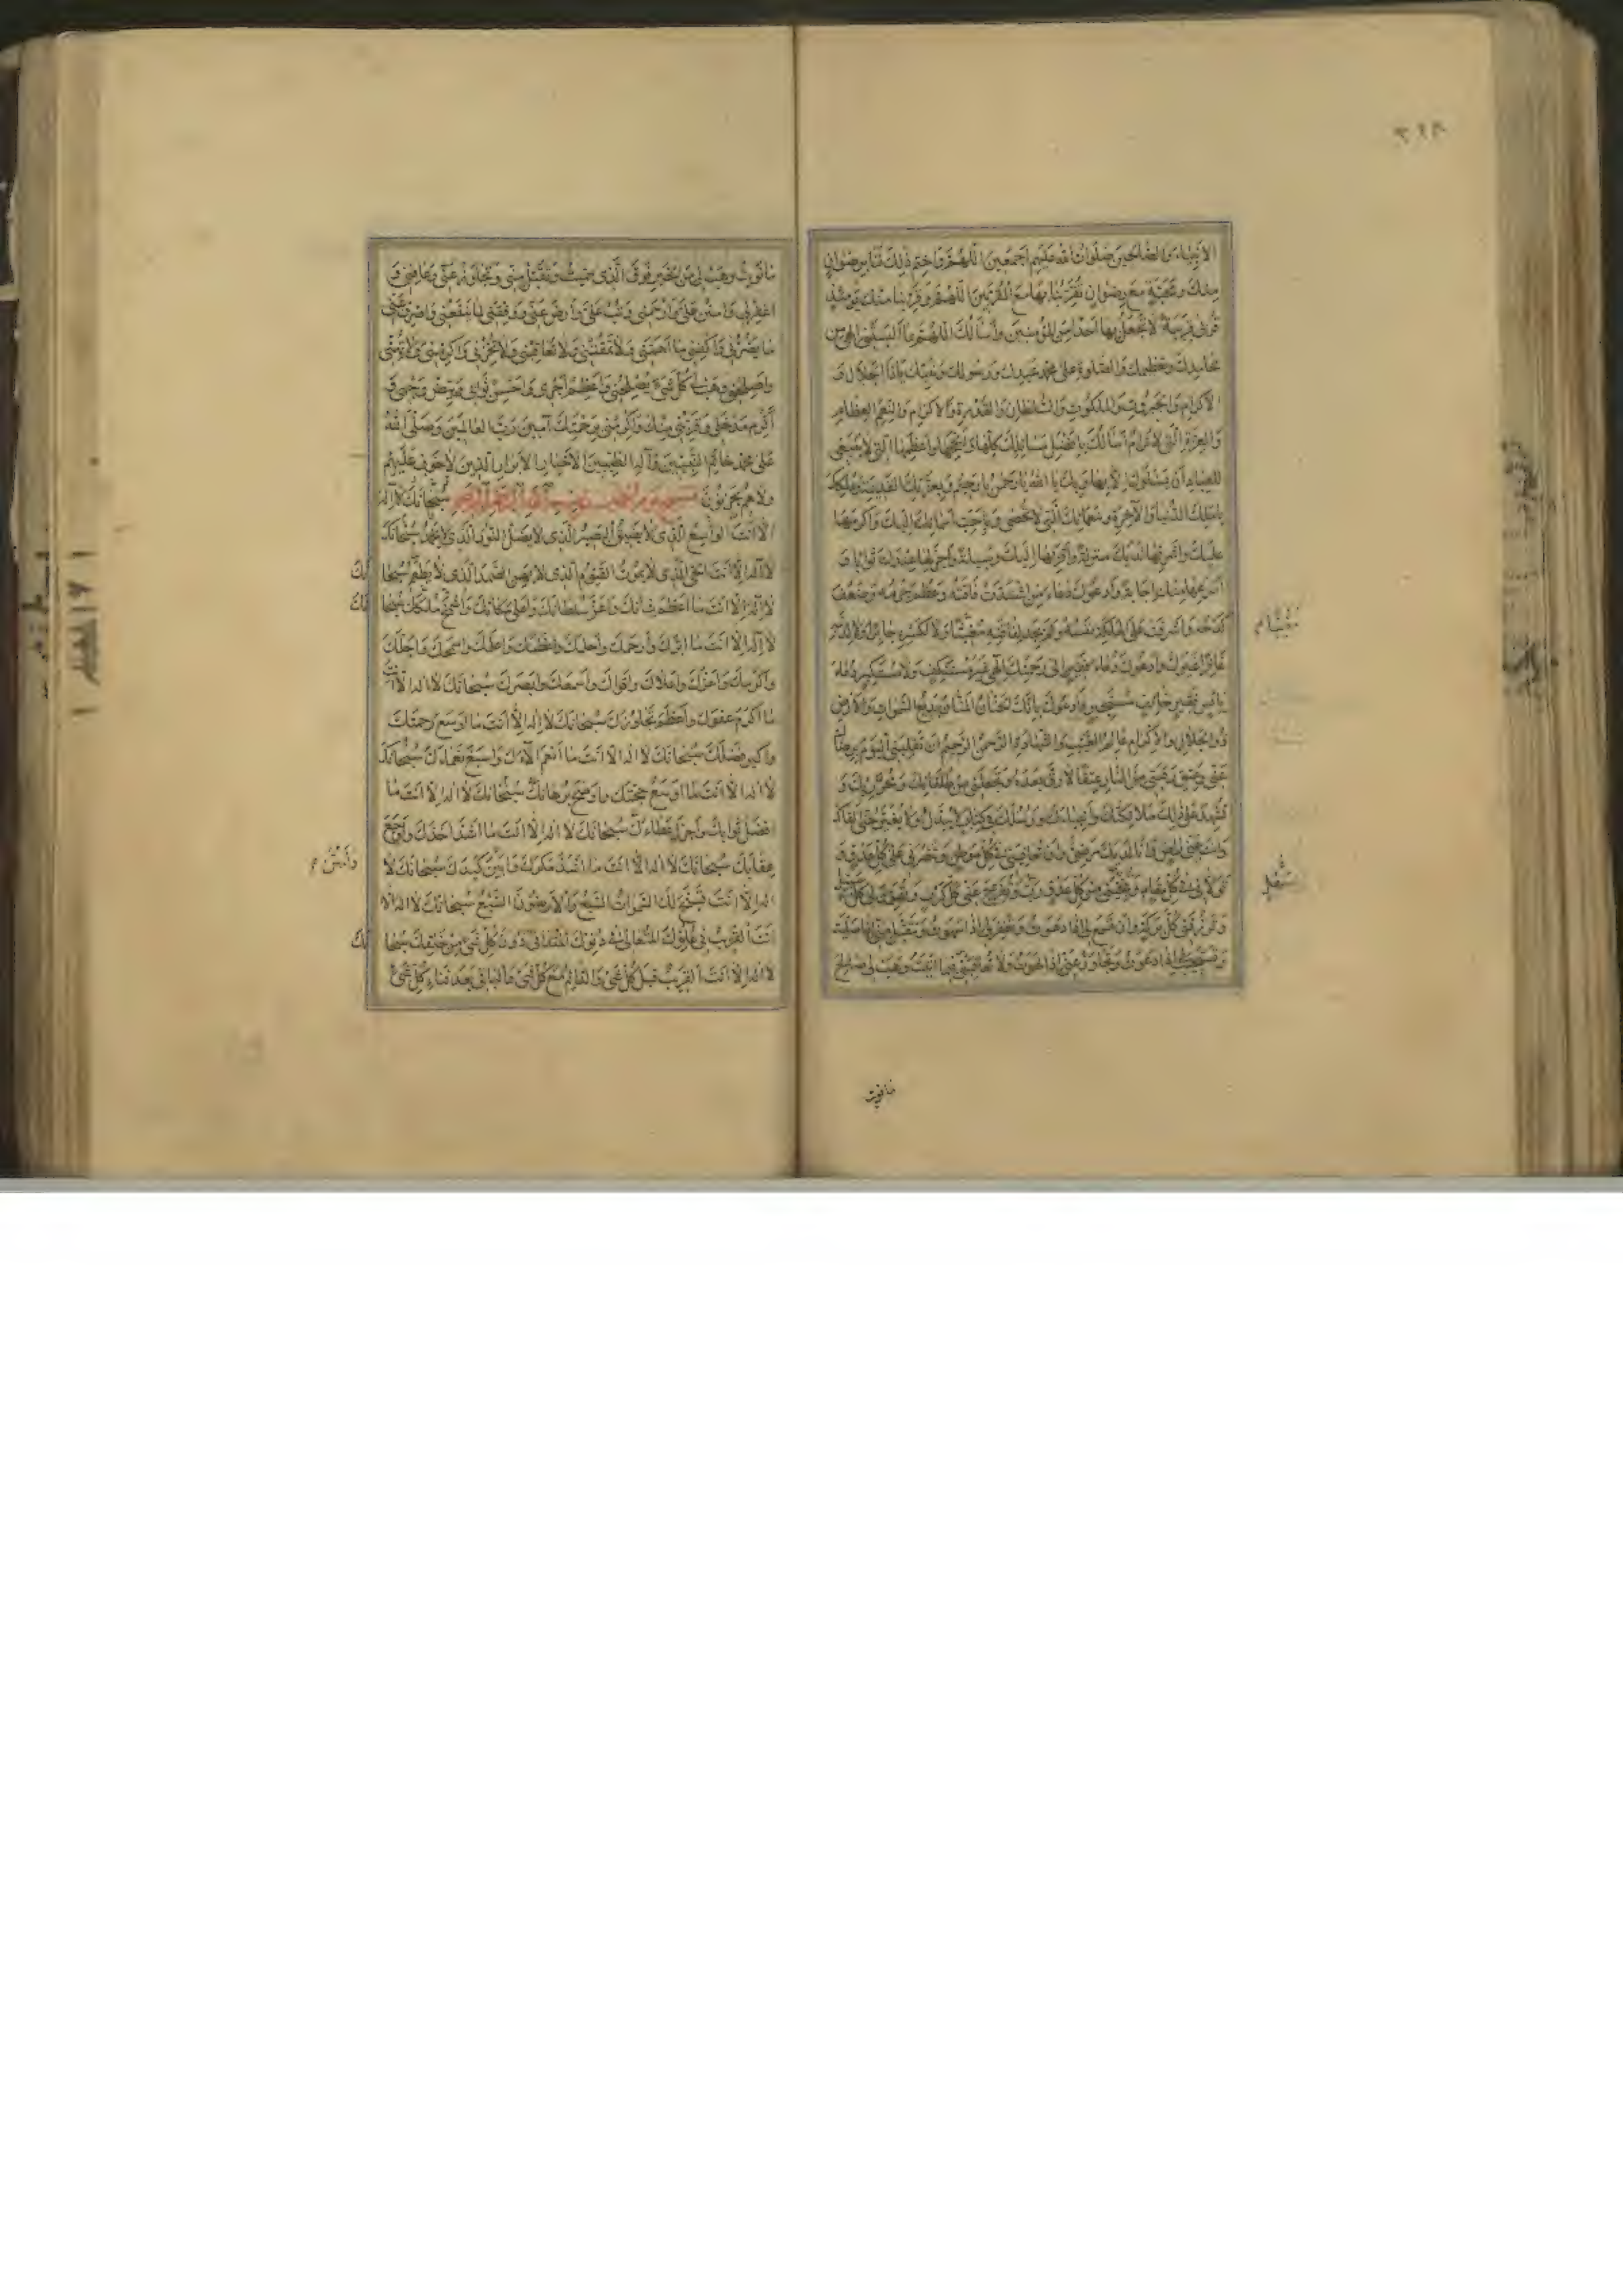 الأنبياء والصالحين صلوات الله عليهم أجمعين اللهم واختم ذلك لنا برضوان
منك ومحبة مع رضوان تقربنا بها مع المقربين اللهم وقربنا منك يومئذ
قربى قريبة لا تجعل بها أحدا من المؤمنين وأسألك اللهم بما ألبستني إلهي من
محامدك وتعظيمك والصلوة على محمد عبدك ورسولك ونبيك يا ذا الجلال و
الإكرام والجبروت والملكوت والسلطان والقدرة والإكرام والنعم العظام
والعزة التي لا ترام أسألك بأفضل مسائلك كلها وأنجحها وأعظمها التي لا ينبغي
للعباد أن يسئلوك إلا بها وبك يا الله يا رحمن يا رحيم وبعزتك القديمة وبملكك
يا ملك الدنيا والآخرة وبنعمائك التي لا تحصى وبأحب أسمائك إليك وأكرمها
عليك وأشرفها لديك منزلة وأقربها إليك وسيلة وأجزلها عندك ثوابا و
أسرعها منك إجابة وأدعوك دعاء من اشتدت فاقته وعظم جرمه وضعف
كدحه وأشرفت على الهلكة نفسه ولم يجد لفاقته مغيثا ولا لكسره جابرا ولا لذنبه
غافرا غيرك وأدعوك دعاء فقير إلى رحمتك إلهي غير مستنكف ولا مستكبر دعاء
بائس فقير خائف مستجير وأدعوك بأنك الحنان المنان بديع السموات والأرض
ذو الجلال والإكرام عالم الغيب والشهادة الرحمن الرحيم أن تقلبني اليوم برضاك
عني وعتق رقبتي من النار عتقا لا رق بعده وتجعلني من طلقائك ومحرريك و
تشهد على ذلك ملائكتك وأنبياءك ورسلك في كتاب لا يبدل ولا يغير حتى ألقاك
وأنت عني راض وأنا لديك مرضي وأن تعافيني في كل موطن وتنصرني على كل عدو و
تولاني في كل مقام وتنجيني من كل عدو رب وتفرج عني كل كرب
وترزقني كل بركة وأن تسمع لي إذا دعوت وتغفر لي إذا سهوت وتتقبل مني إذا صليت
وتستجيب لي إذا دعوت وتجاوز عني إذا لهوت ولا تعاقبني فيما أتيت وهب لي صالح
مقام
ما نويت
ما نويت وهب لي من الخير فوق الذي سميت وتقبل مني وتجاوز عني وعافني و
اغفر لي وامنن علي وارحمني وتب علي وارض عني ووفقني لما ينفعني واصرف عني
ما يضرني واكفني ما أهمني ولا تمقتني ولا تعاقبني ولا تخزني وأكرمني ولا تهني
وأصلحني وهب لي كل شيء يصلحني وأعظم أجري وأحسن ثوابي وبيض وجهي و
أكرم مدخلي وقربني منك وأكرمني برحمتك آمين رب العالمين وصلى الله
على محمد خاتم النبيين وآله الطيبين الأخيار الأبرار الذين لا خوف عليهم
ولا هم يحزنون بسم الله الرحمن الرحيم سبحانك لا إله
إلا أنت الواسع الذي لا يضيق البصير الذي لا يضل النور الذي لا يخمد سبحانك
لا إله إلا أنت الحي الذي لا يموت القيوم الذي لا يهن الصمد الذي لا يطعم سبحانك
لا إله إلا أنت ما أعظم شأنك وأعز سلطانك وأعلى مكانك وأشمخ ملكك سبحانك
لا إله إلا أنت ما أبرك وأرحمك وأحلمك وأعظمك وأعلمك وأسمحك وأجلك
وأكرمك وأعزك وأعلاك وأقواك وأسمعك وأبصرك سبحانك لا إله إلا أنت
ما أكرم عفوك وأعظم تجاوزك سبحانك لا إله إلا أنت ما أوسع رحمتك
وأكبر فضلك سبحانك لا إله إلا أنت ما أنعم آلاءك وأسبغ نعماءك سبحانك
لا إله إلا أنت ما أوسع حجتك وأوضح برهانك سبحانك لا إله إلا أنت ما
أفضل ثوابك وأجزل عطاءك سبحانك لا إله إلا أنت ما أشد أخذك وأوجع
عقابك سبحانك لا إله إلا أنت ما أشد مكرك وأمتن كيدك سبحانك لا
إله إلا أنت تسبح لك السموات السبع والأرضون السبع سبحانك لا إله إلا
أنت القريب في علوك المتعالي في دنوك المتداني دون كل شيء من خلقك سبحانك
لا إله إلا أنت القريب قبل كل شيء والدائم مع كل شيء والباقي بعد فناء كل شيء
وأمتن